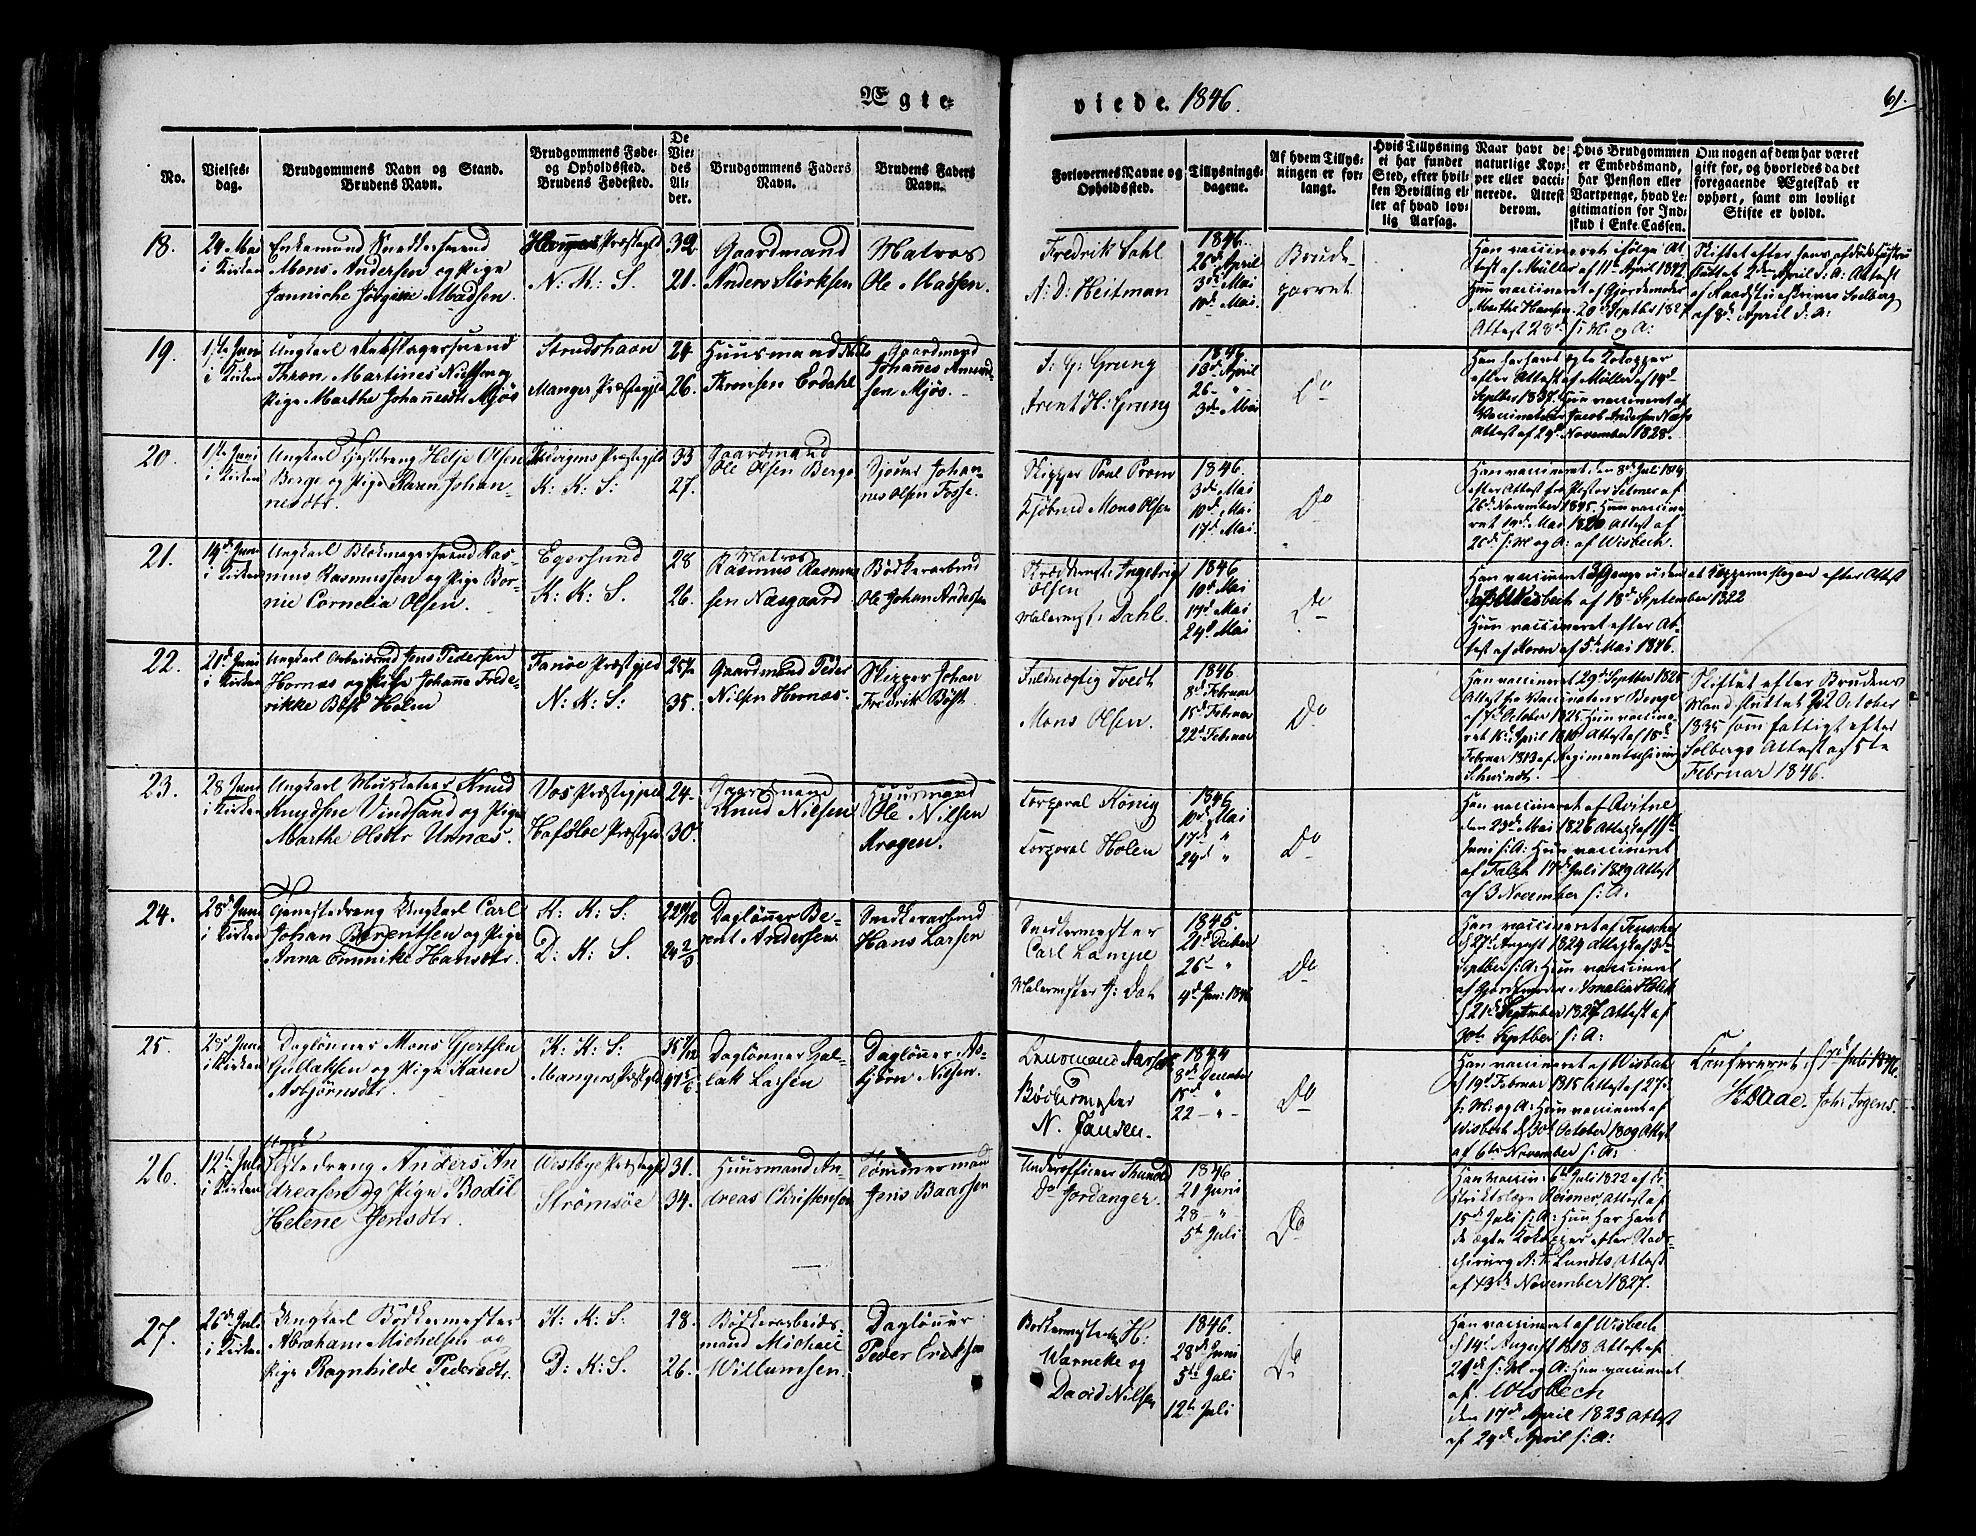 Ægte-
viede. 1846.
61.
No.
Vielses-
dag.
Brudgommens Navn og Stand.
Brudens Navn.
Brudgommens Føde-
og Opholdssted.
Brudens Fødested.
De
Vie-
des
Al-
der.
Brudgommens Faders
Navn.
Brudens Faders
Navn.
Forlovernes Navne og
Opholdssted.
Tillysnings-
dagene.
Af hvem Tillys-
ningen er for-
langt.
Hvis Tillysning
ei har fundet
Sted, efter hvil-
ken Bevilling el-
ler af hvad lov-
lig Aarsag.
Naar havt de
naturlige Kop-
per eller vacci-
nerede. Attest
derom.
Hvis Brudgommen
er Embedsmand,
har Pension eller
Vartpenge, hvad Le-
gitimation for Ind-
skud i Enke Cassen.
Om nogen af dem har været
gift for, og hvorledes da det
foregaaende Ægteskab er
ophørt, samt om lovligt
Skifte er holdt.
18.
24 Mai
i Kirken
Enkemand
Mons Andersen og Pige
Jannicke Jørgine Madsen.
Præstegjeld
N: K: S.
32
21.
Gaardmand
Anders Størksen
Matros
Ole Madsen.
Fredrik Dahl
A: D: Heitman
1846.
26d April
3d Mai
10d Mai.
Brud-
gommen
af Müller af 11te April 1842
Marthe Hansen 20 Septbr 1827
Attest 28de s: M. og A:
af 8d April s: A:
19.
1ste Juni
i Kirken
Ungkarl
Thron Martines Nielsen og
Pige Marthe Johannesdtr Mjøs
Strudshavn
Manger Præstegjeld
24
26.
Huusmand Niels
Thronsen Erdahl
Gaardmand
Johannes Amund-
sen Mjøs.
F: G: Grung
Arent H: Grung
1846
13d April
26 - "
3d Mai
Do
efter Attest af Müller af 19d
Septbr 1838. Hun vaccineret af
Jacob Andersen Næss
Attest af 29d November 1828.
20.
1ste Juni
i Kirken
Ungkarl Helje Olsen
Berge og Pige Karen Johan-
nesdtr.
Præstegjeld
K: K: S:
33
27.
Gaardmand
Ole Olsen Berge
Johan-
nes Olsen Fosse.
Skipper Poul Prom
Mons Olsen
1846.
3d Mai
10d Mai
17d Mai.
Do
Han vaccineret den 8d Juli 1814
efter Attest fra Præsten Selmer af
26d November 1845 Hun vaccine-
ret 19d Mai 1820 Attest af
26d s: M og A: af Wisbech.
21.
14d Juni
i Kirken
Ungkarl Blokmagersvend Ras-
mus Rasmussen og Pige Bor-
nie Cornelia Olsen.
Egersund
K: K: S.
28
26.
Matros
Rasmus Rasmus-
sen Næsgaard
Bødkersvend
Ole Johan Andersen
Ingebrigt
Olsen
Dahl.
1846
10d Mai
17d Mai
24d Mai
Do
Han vaccineret uden at Kopperne slog an efter Attest
af Wisbech af 18d September 1822
Hun vaccineret efter At-
test af Koren af 5te Mai 1846.
22.
21d Juni
i Kirken
Ungkarl Arbeidsmd Jens Pedersen
Hornæs og Pige Johanne Frede-
rikke Bøst Holm
Fanøe Præstegjeld
N: K: S:
25½
35.
Gaardmand Peder
Nilsen Hornæs.
Skipper Johan
Fredrik Bøst.
Fuldmægtig Tvedt
Mons Olsen.
1846
8d Februar
15d Februar
22d Februar
Do
Han vaccineret 29d Septbr 1825
Attest fra Vaccinatør Berge
af 7d October 1825 Hun vaccine-
ret 16d April 1810 Attest af 18d
Februar 1813 af Regimentschirurg
Schwindt.
Skiftet efter Brudens
Mand sluttet 22 October
1835 som fattigt efter
Solbergs Attest af 5te
Februar 1846.
23.
28 Juni
i Kirken
Ungkarl Musketeer Knud
Knudsen Vindsand og Pige
Marthe Olsdtr Urnæs.
Vos Præstegjeld
Hafsloe Præstegjeld
24.
30.
Gaardmand
Knud Nielsen
Huusmand
Ole Nilsen
Krogen.
Corporal König
Corporal Holen
1846
10d Mai
17d "
24d "
Do
Han vaccineret af
den 23d Mai 1826 Attest af 1ste
Juni s: A: Hun vaccineret
af Falch 17d Juli 1829 Attest
af 3 November s: A:
24.
28d Juni
i Kirken
Tjenestedreng Ungkarl Carl
Johan Berentsen og Pige
Anna Emmike Hansdtr.
K: K: S:
D: K: S.
22 11/12
24 2/3
Dagløner Be-
rent Andersen
Snedkersvend
Hans Larsen
Snedkermester
Carl Lampe
Malermester J: Dah
1845
21d Decber
26 - "
4d Jan: 1846
Do
Han vaccineret af
d 27d August 1824 Attest af 3d
Septber s: A: Hun vaccineret
af Gjordemoder Amalia Holck
d 21d September 1827 Attest af
30te Septber s: A:
25.
28d Juni
i Kirken
Dagløner Mons Gjertsen
Gullaksen og Pige Karen
Asbjørnsdtr.
K: K: S:
Mangers Præstegjeld
Dagløner Gul-
lak Larsen
Dagløner As-
bjørn Nilsen.
Lensmand Aarsæth
Bødkermester
N. Jansen.
1844
8d December
15d "
22 - " -
Do
Han vaccineret af Wisbech
d 19d Februar 1815 Attest af 27d
s: M: og A: Hun vaccineret af
Wisbech d 30d October 1809 Attest
af 6te November s: A:
Confereret d 7d Juli 1846.
H. Daae. Joh: Irgens.
26.
12te Juli
i Kirken
Tjenestedreng Anders An-
dreasen og Pige Bodil
Helene Jensdtr.
Westbye Præstegjeld
Strømsøe
31.
34.
Huusmand An-
dreas Christensen
Tømmermand
Jens Baarsen
Underofficeer Thunold
Do Jordanger.
1846
21 Juni
28 - "
5te Juli
Do
Han vaccin: 6te Juli 1822 af Di-
striktslæge Reimer Attest af
15d Juli s: A: Hun har havt
de ægte Kokopper efter Stads-
chirurg A: K: Lundts Attest
af 13de November 1827.
27.
26d Juli
i Kirken
Ungkarl Bødkermester
Abraham Michelsen og
Pige Ragnhilde Pedersdtr.
K: K: S:
D: K: S.
28.
26.
Bødkerarbeids-
mand Michael
Willumsen.
Dagløner
Peder Eriksen
Bødkermester H:
Warneke og
David Nilsen
1846.
28d Juni
5te Juli
12te Juli
Do
Han vaccineret af Wisbech
d 14d August 1818 Attest af
24d s: M og A: Hun vaccineret
af Wisbech
den 17d April 1823 Attest
af 29d April s: A: